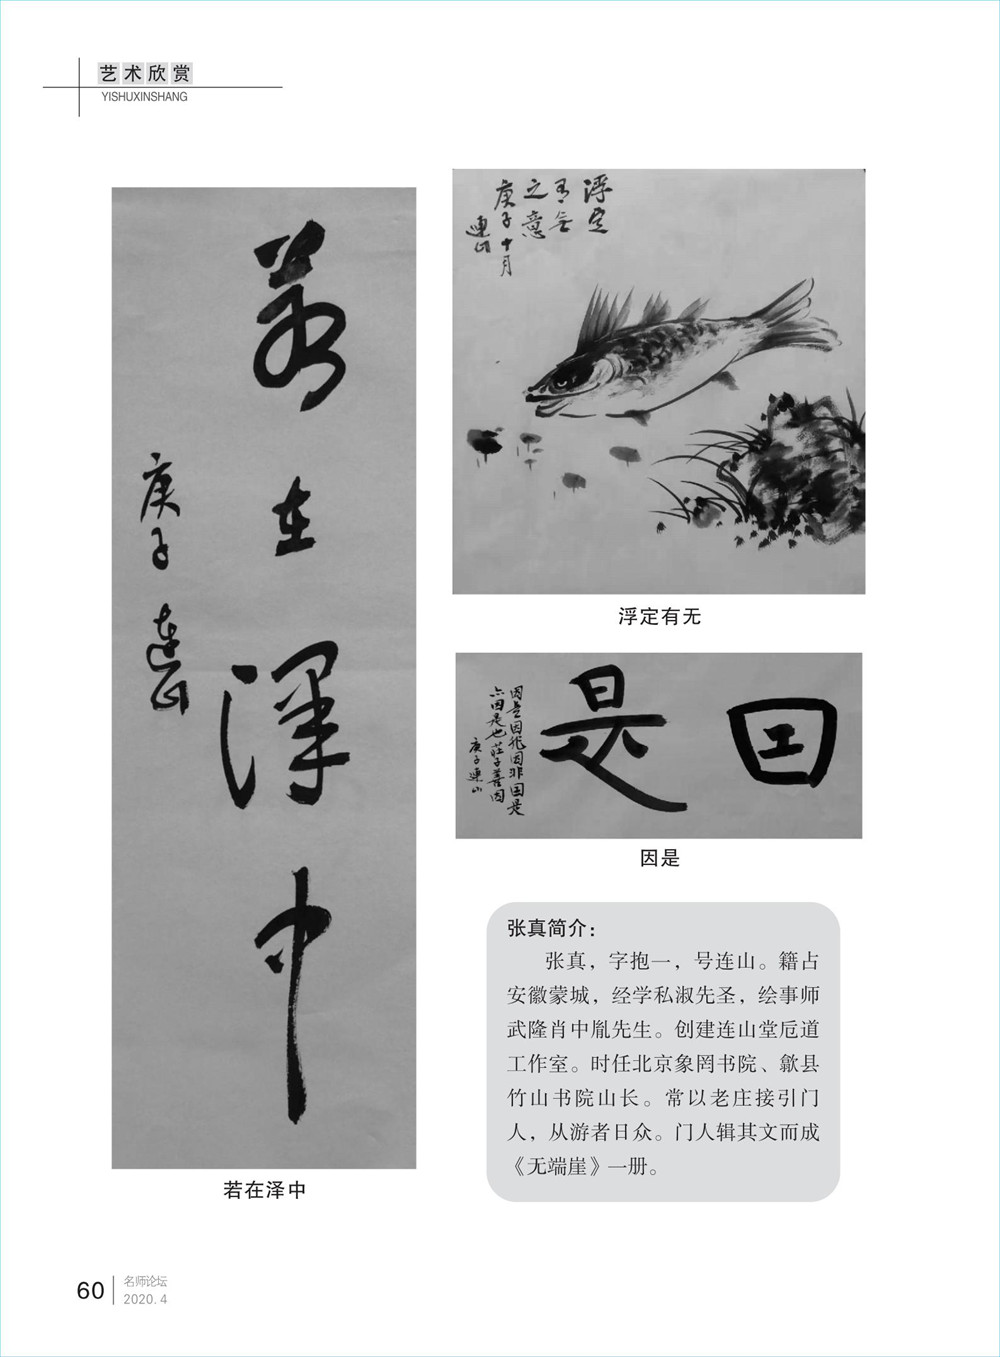 艺术欣赏
YISHUXINSHANG
若在泽中
庚子 连山
浮定
有无
之意
庚子十月
连山
浮定有无
因是
因是因非因非因是
亦因是也庄子善因
庚子连山
因是
张真简介：
张真，字抱一，号连山。籍占
安徽蒙城，经学私淑先圣，绘事师
武隆肖中胤先生。创建连山堂卮道
工作室。时任北京象罔书院、歙县
竹山书院山长。常以老庄接引门
人，从游者日众。门人辑其文而成
《无端崖》一册。
若在泽中
60
名师论坛
2020. 4